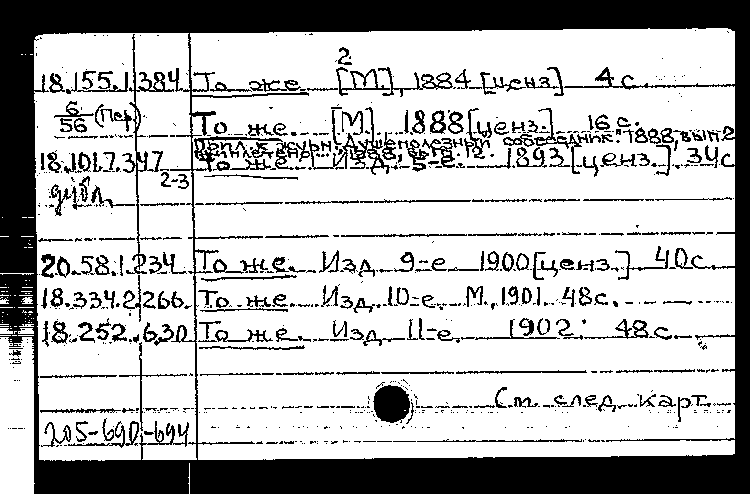 2
18.155.1.384 То же [М.], 1884 [ценз.] 4 с.
6/56 (Пер.) То же. [М.] 1888 [ценз.] 16 с.
Прил. к журн. Душеполезный собеседник. 1888, вып. 2
18.101.7.347 То же. Изд. 5-е. 1893 [ценз.]. 34 с
2-3
дубл.
20.58.1.234 То же. Изд. 9-е. 1900 [ценз.] 40 с.
18.334.2.266. То же. Изд. 10-е. М., 1901. 48 с.
18.252.6.30 То же. Изд. 11-е. 1902. 48 с.
См. след. карт.
205-690-694